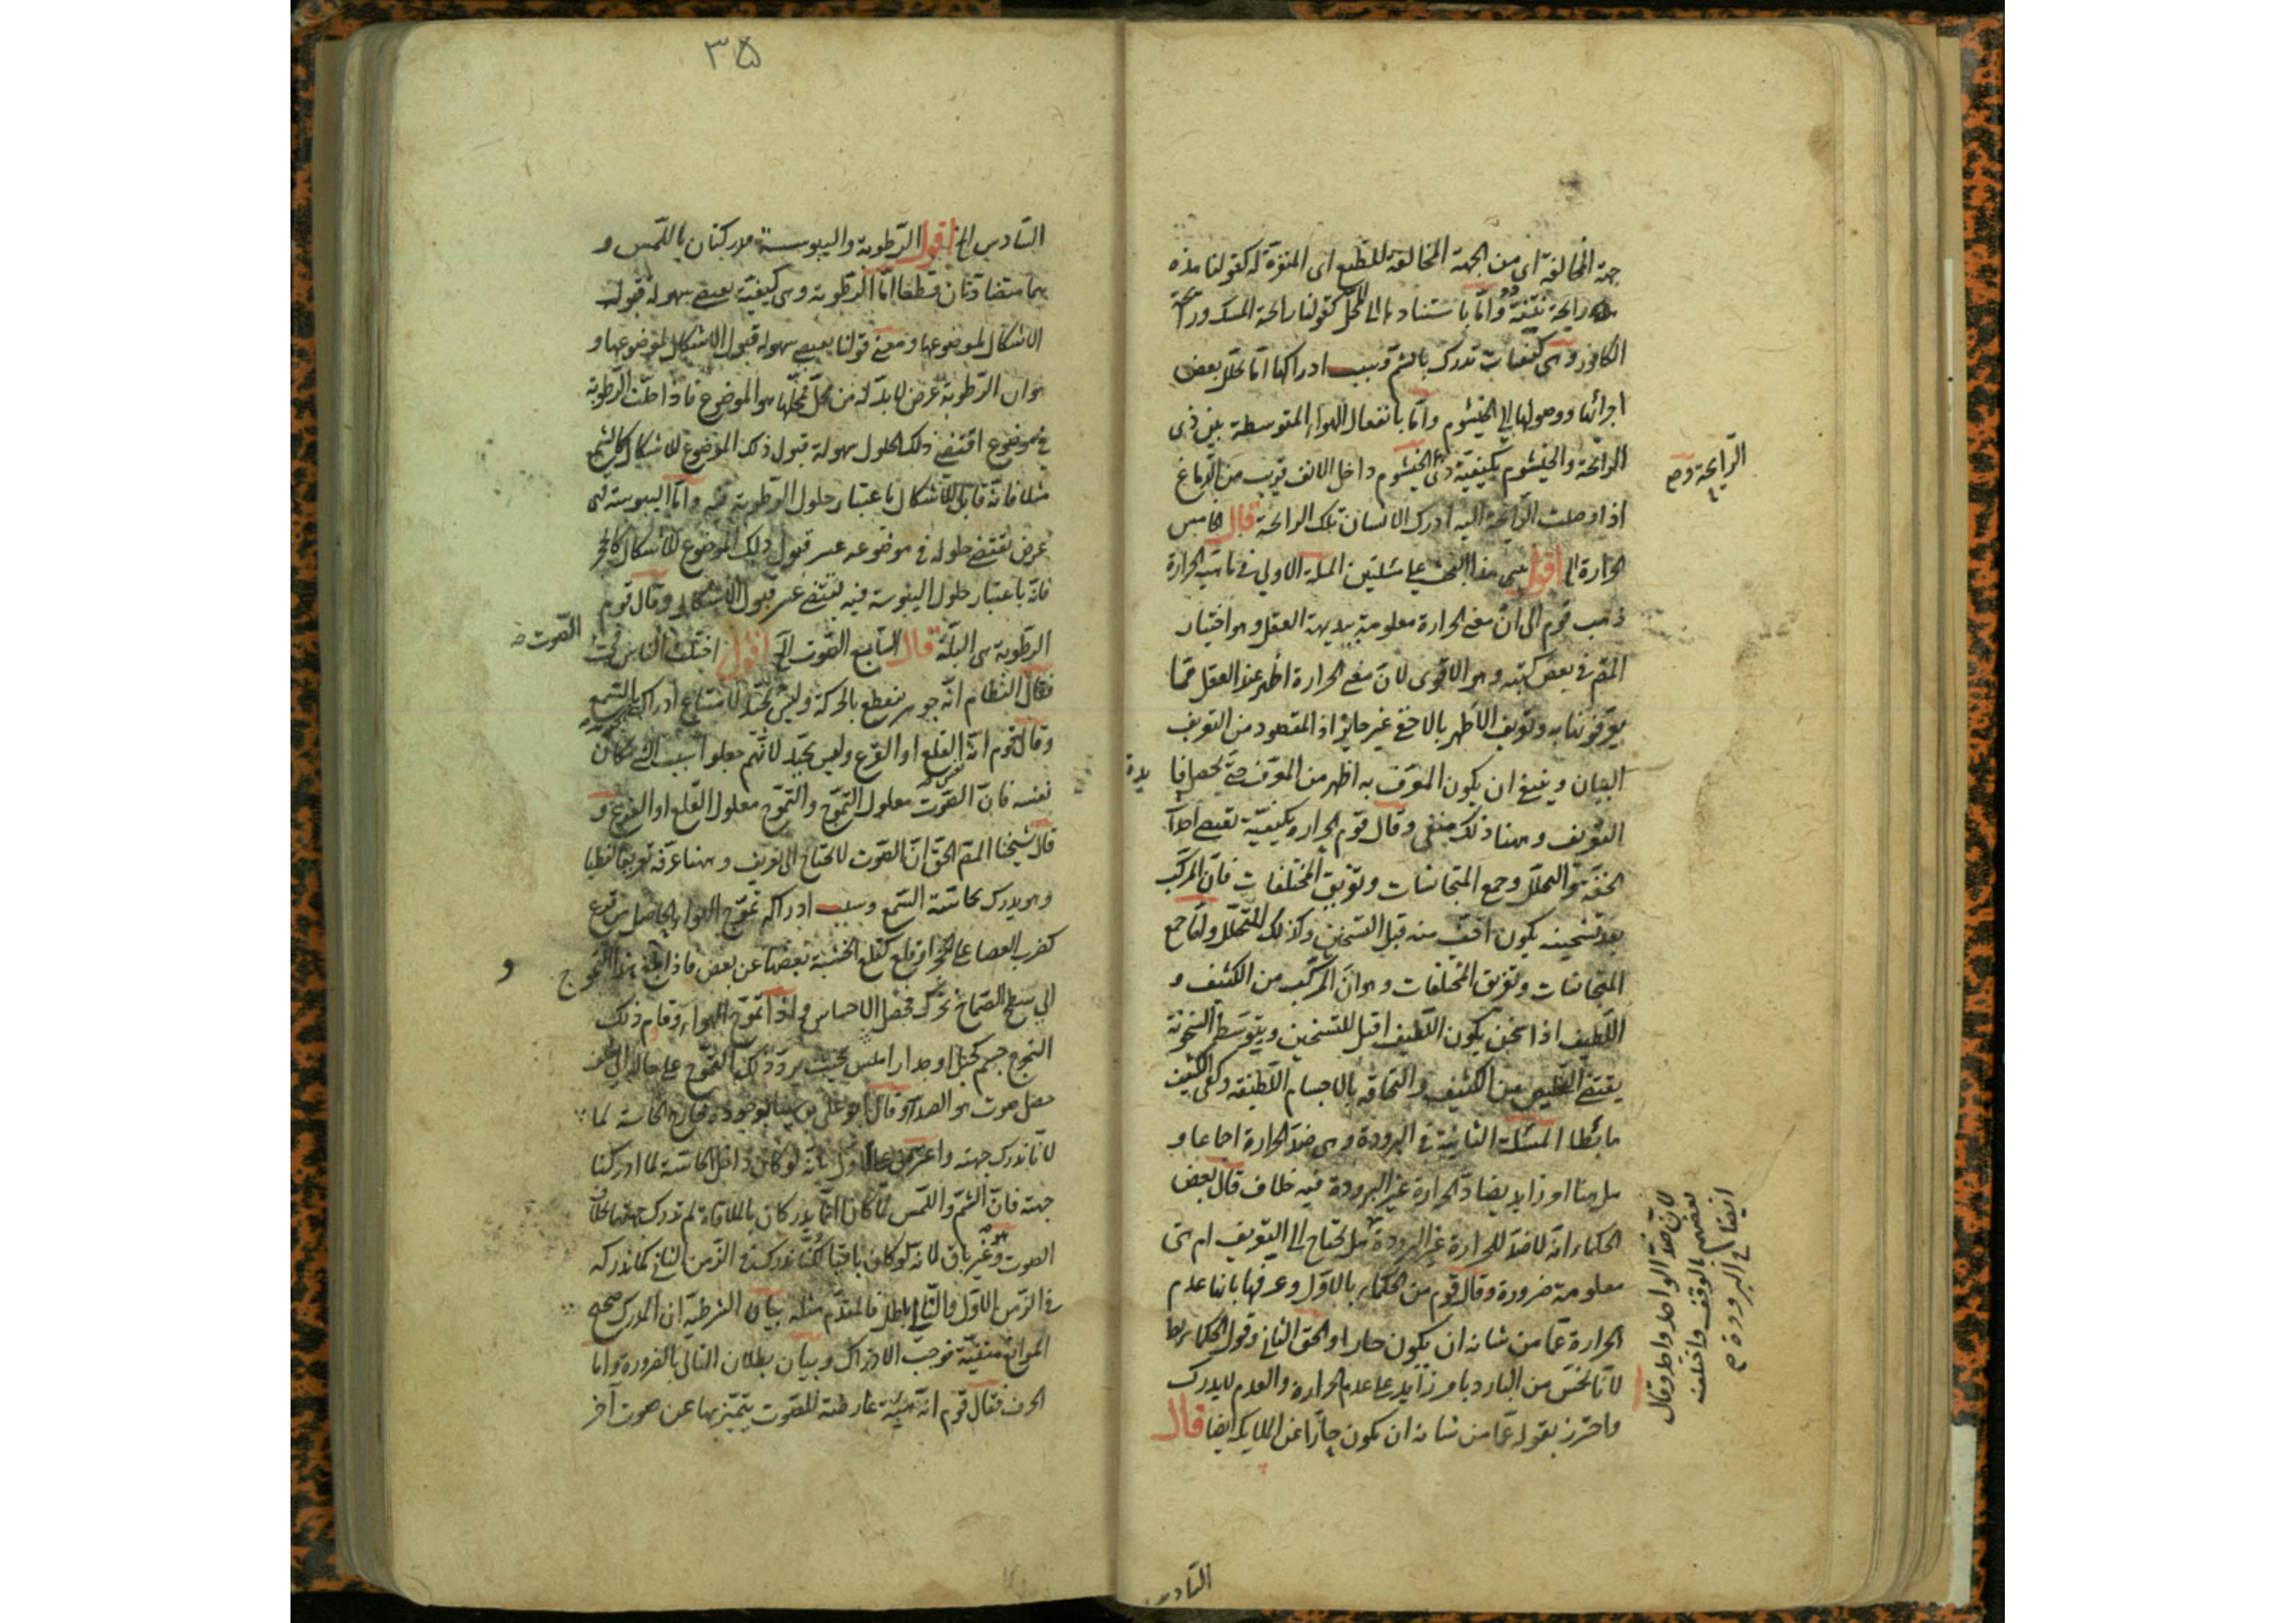 جهة المخالفة اى من الجهة المخالفة للطبع اى المنفرة له كقولنا هذه
رايحة نتنة واما باستنادها الى المحل كقولنا رايحة المسك ورايحة
الكافور وهى كيفيات تدرك بالشم وسبب ادراكها اما تحلل بعض
اجزائها ووصولها الى الخيشوم واما بانفعال الهواء المتوسطة بين ذى
الرائحة والخيشوم بكيفية ذى الخيشوم داخل الانف قريب من الدماغ
الرايحة وهى
اذا وصلت الرايحة اليه ادرك الانسان تلك الرايحة قال الخامس
الحرارة الخ اقول هذا البحث على مسئلتين المسئلة الاولى فى ماهية الحرارة
ذهب قوم الى ان معنى الحرارة معلومة ببديهة العقل وهو اختيار
المقم فى بعض كتبه وهو الاقوى لان معنى الحرارة اظهر عند العقل مما
يعرفوننا به وتعريف الاظهر بالاخفى غير جايز اذ المقصود من التعريف
البيان وينبغى ان يكون المعرف به اظهر من المعرف حتى يحصل
التعريف وههنا ذلك منتفى وقال قوم الحرارة كيفية تقتضى
الخفة والتحلل وجمع المتجانسات وتفريق المختلفات فان المركب
بعد تسخينه يكون اخف منه قبل التسخين وكذلك التحلل واما جمع
المتجانسات وتفريق المختلفات وهو ان المركب من الكثيف و
اللطيف اذا سخن يكون اللطيف اقبل للتسخين ويتوسط السخونة
يقتضى من الكثيف والتحاقه بالاجسام اللطيفة وبقى الكثيف
هابطا المسئلة الثانية فى البرودة وهى ضد الحرارة اجماعا و
هل هنا امر زايد يضاد الحرارة غير البرودة فيه خلاف قال بعض
الحكماء انه لا ضد للحرارة غير البرودة هل تحتاج الى التعريف ام هى
معلومة ضرورة وقال قوم من الحكماء بالاول وعرفها بانها عدم
الحرارة عما من شانه ان يكون حارا والحق الثانى وقول الحكماء بط
لانا نحس من البارد بامر زايد على عدم الحرارة والعدم لا يدرك
واحترز بقوله عما من شانه ان يكون حارا عن الملايكة ايضا قال
لان ضد الواحد واحد وقال
بعضهم بالوقف واختلف
ايضا فى البرودة
السادس
۳۵
السادس الخ اقول الرطوبة واليبوسة مدركتان باللمس و
هما متضادتان قطعا اما الرطوبة وهى كيفية يقتضى سهولة قبول
الاشكال لموضوعها ومعنى قولنا يقتضى سهولة قبول الاشكال لموضوعها و
هو ان الرطوبة عرض لا بد له من محل فمحلها هو الموضوع فاذا حلت الرطوبة
فى موضوع اقتضى ذلك الحلول سهولة قبول ذلك الموضوع للاشكال كالشمع
مثلا فانه قابل للاشكال باعتبار حلول الرطوبة فيه واما اليبوسة فهى
عرض يقتضى حلوله فى موضوعه عسر قبول ذلك الموضوع للاشكال كالحجر
فانه باعتبار حلول اليبوسة فيه يقتضى عسر قبول الاشكال وقال قوم
الرطوبة هى البلة قال السابع الصوت الخ اقول اختلف الناس فى
الصوت
فقال النظام انه جوهر ينقطع بالحركة وليس بجيد لامتناع ادراك السمع
وقال قوم انه القلع او القرع وليس بجيد لانهم جعلوا سبب الشئ مكان
نفسه فان الصوت معلول التموج والتموج معلول القلع او القرع و
قال شيخنا المقم الحق ان الصوت لا يحتاج الى تعريف وههنا عرفه تعريفا لفظيا
وهو يدرك بحاسة السمع وسبب ادراكه تموج الهواء الحاصل من قرع
كضرب العصا على الحجر او قلع كقلع الخشبة بعضها عن بعض فاذا هذا التموج
الى سطح الصماخ تحرك فحصل الاحساس واذا تموج الهواء وقاوم ذلك
التموج جسم كجبل او جدار املس بحيث يرد ذلك التموج على حاله
حصل صوت هو الصدا وقال ابو على بن سينا بوجوده خارج الحاسة لما
لانا ندرك جهته واعترض على الاول بانه لو كان داخل الحاسة لما ادركنا
جهته فان الشم واللمس لما كانا انما يدركان بالملاقاة لم تدرك جهتهما
الصوت وهو غير باق لانه لو كان باقيا لكنا ندركه فى الزمن الثانى كما ندركه
فى الزمن الاول والتالى باطل فالمقدم مثله بيان الشرطية ان المدرك صحيح
الموانع منفية فوجب الادراك وبيان بطلان التالى بالضرورة واما
الحرف فقال قوم انه هيئة عارضة للصوت يتميز بها عن صوت آخر